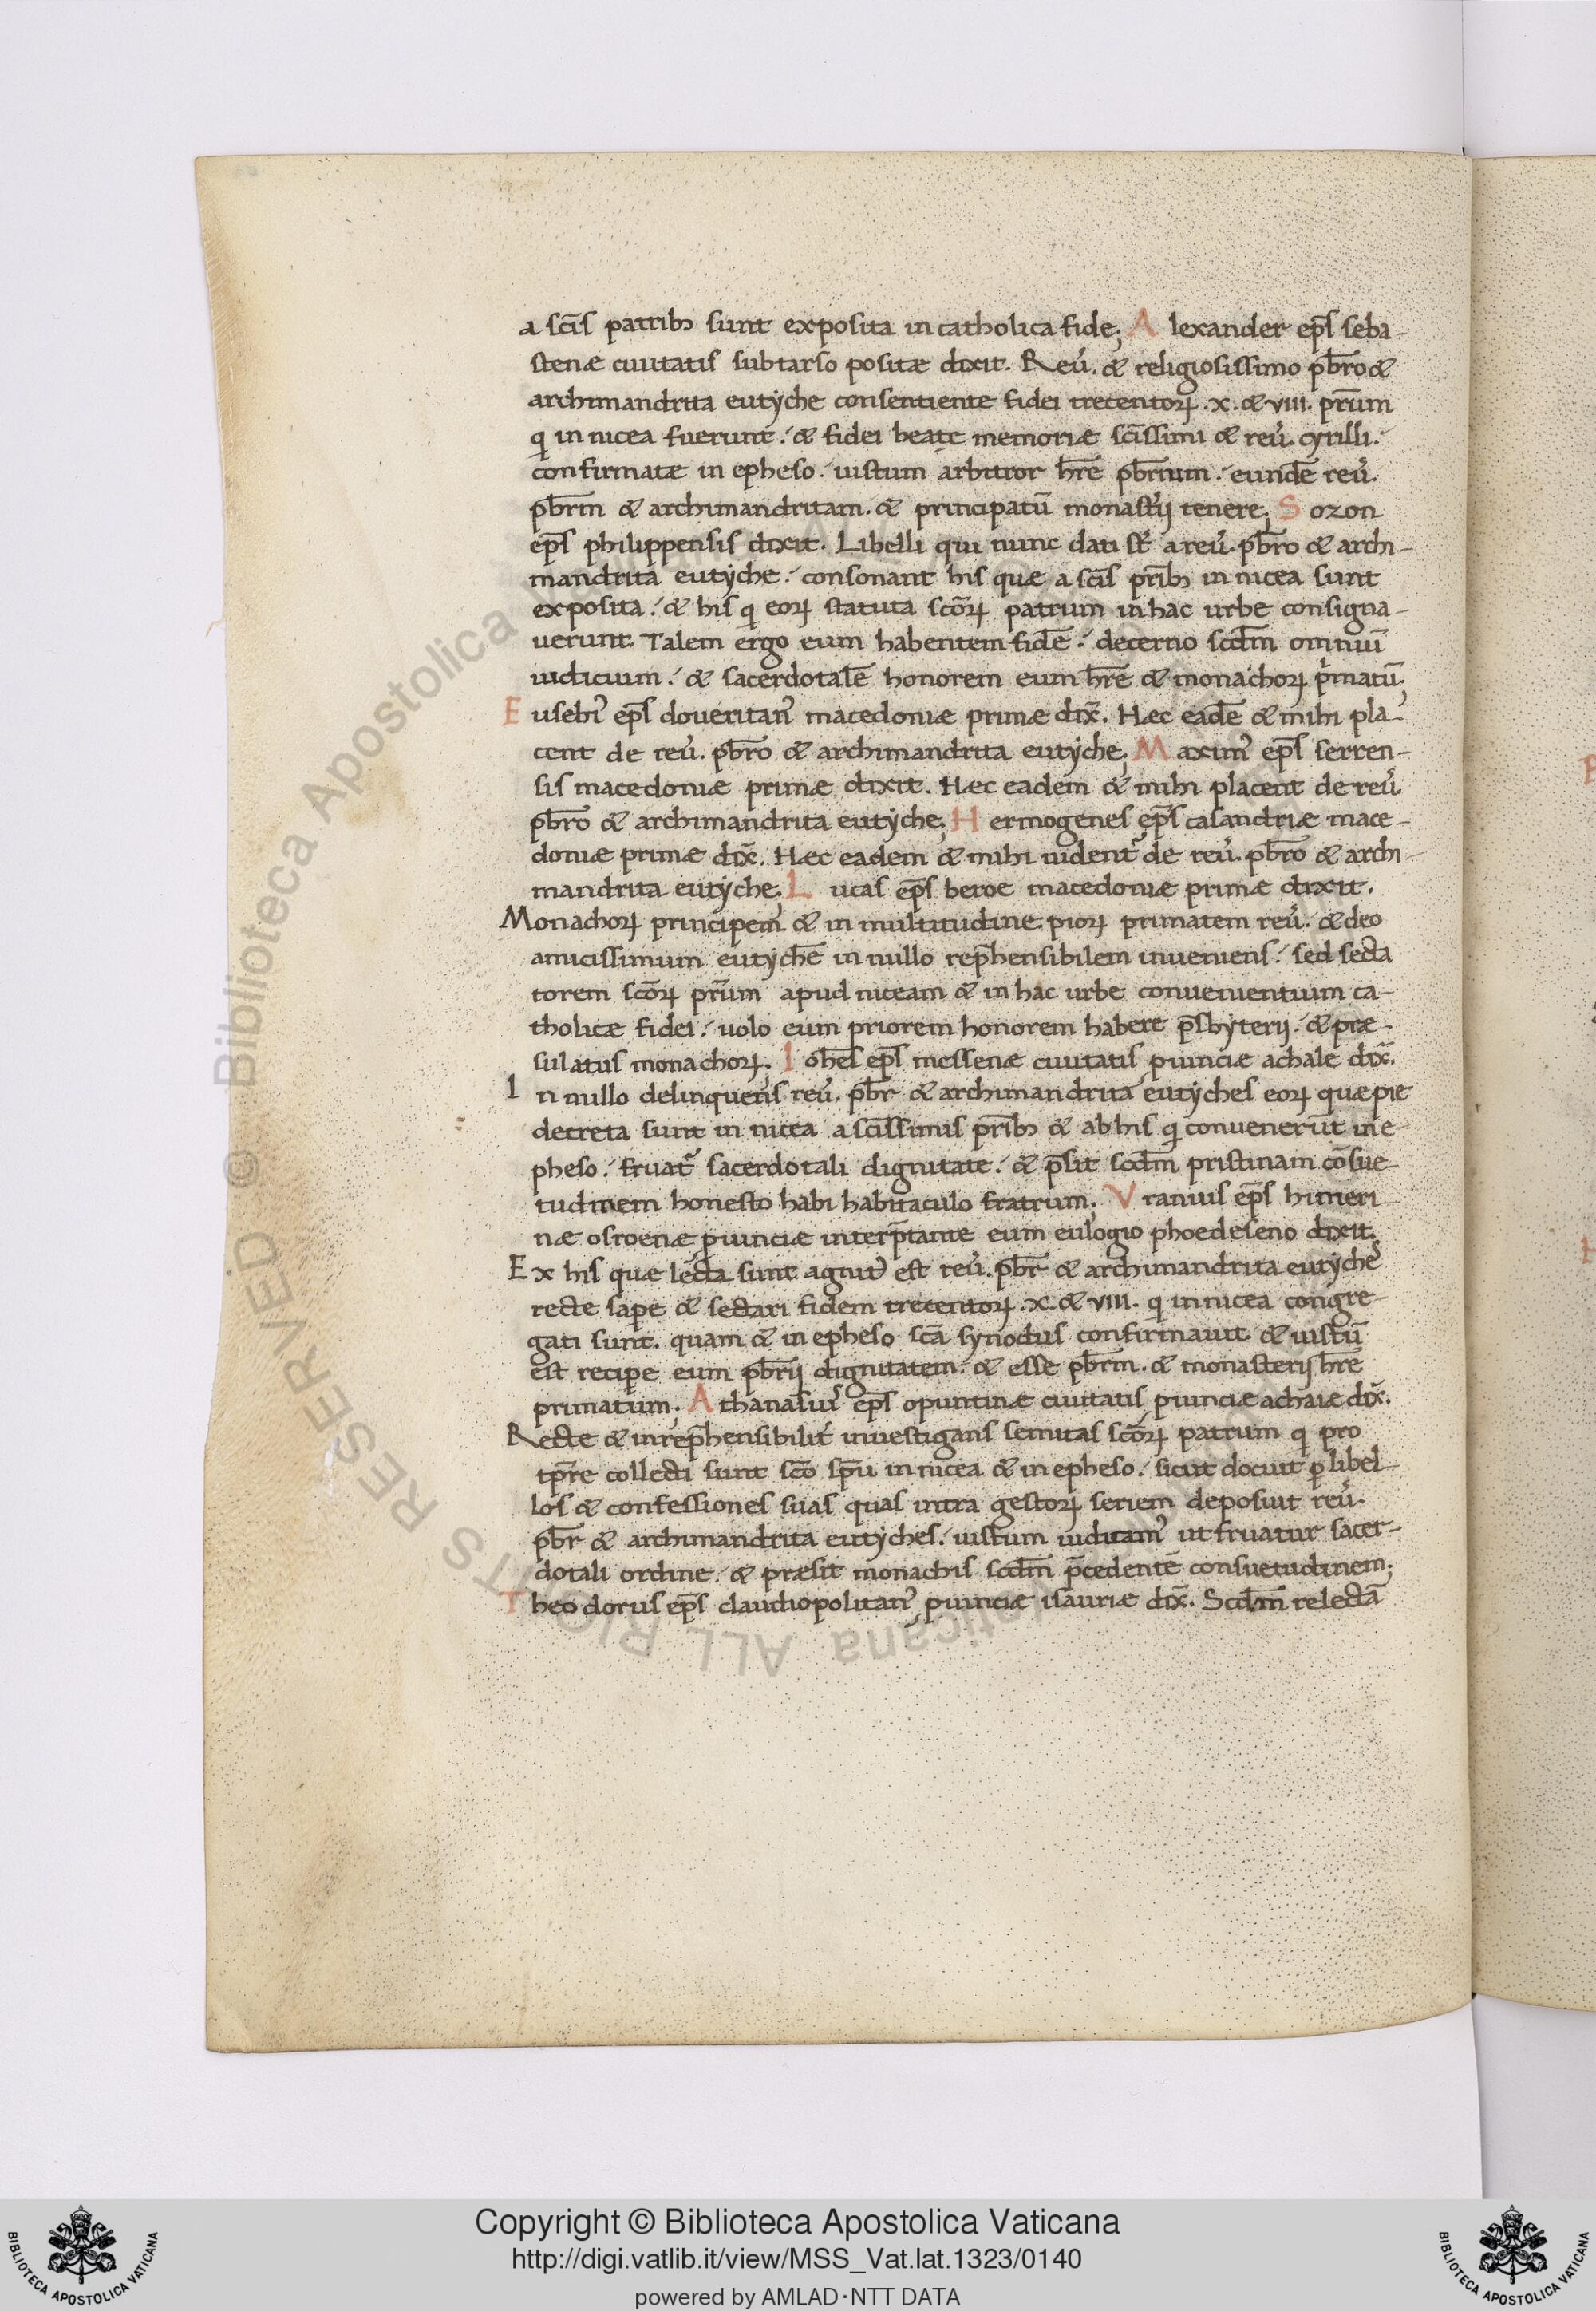 a sc̄is patrib; sunt exposita in catholica fide; Alexander ep̄s seba-
stenæ ciuitatis sub tarso positæ dixit. Reu̓. & religiosissimo pb̄ro &
archimandrita eutyche consentiente fidei trecentoꝝ .x. & viii. pr̄um
q̇ in nicea fuerunt. & fidei beate memoriæ sc̄issimi & reu̓. cyrilli.
confirmatæ in epheso. iustum arbitror h̄re pb̄rium. eundē reu̓.
pb̄rm & archimandritam. & principatū monast̓ij tenere; Sozon
ep̄s philippensis dixit. Libelli qui nunc dati st̄ a reu̓. pb̄ro & archi-
mandrita eutyche. consonant his quæ a sc̄is pr̄ib; in nicea sunt
exposita. & his q̇ eoꝝ statuta sc̄oꝝ patrum in hac urbe consigna-
uerunt. Talem ergo eum habentem fidē. decerno sc̄dm omniū
iudicium. & sacerdotalē honorem eum h̄re & monachoꝝ pͥmatū;
Eusebi᾽ ep̄s doueritan᾽ macedoniæ primæ dix̄. Hæc eadē & mihi pla-
cent de reu̓. pb̄ro & archimandrita eutyche; Maxim᾽ ep̄s serren-
sis macedoniæ primæ dixit. Hæc eadem & mihi placent de reu̓.
pb̄ro & archimandrita eutyche; Hermogenes ep̄s casandriæ mace-
doniæ primæ dix̄. Hæc eadem & mihi uident᷑ de reu̓. pb̄ro & archi-
mandrita eutyche; Lucas ep̄s beroe macedoniæ primæ dixit.
Monachoꝝ principem & in multitudine pioꝝ primatem reu̓. & deo
amicissimum eutychē in nullo rep̄hensibilem inueniens. sed secta
torem sc̄oꝝ pr̄um apud niceam & in hac urbe conuenientium ca-
tholicæ fidei. uolo eum priorem honorem habere p̄sbyterij. & præ-
sulatus monachoꝝ. Ioh̄es ep̄s messenæ ciuitatis ꝓuinciæ achaie dix̄.
In nullo delinquens reu̓. pb̄r & archimandrita eutyches eoꝝ quæ pie
decreta sunt in nicea a sc̄issimis pr̄ib; & ab his q̇ conuenerūt in e-
pheso. fruat᷑ sacerdotali dignitate. & p̄sit sc̄dm pristinam cōsue-
tudinem honesto habi habitaculo fratrum; Vranius ep̄s himeri-
næ osroenæ ꝓuinciæ interp̄tante eum eulogio phoedeseno dixit.
Ex his quæ lecta sunt agnit᾽ est reu̓. pb̄r & archimandrita eutyche᾽
recte sapꝑe & sectari fidem trecentoꝝ .x. & viii. q̇ in nicea congre-
gati sunt. quam & in epheso sc̄a synodus confirmauit. & iustū
est recipꝑe eum pb̄rij dignitatem. & esse pb̄rm. & monasterij h̄re
primatum; Athanasius ep̄s opuntinæ ciuitatis ꝓuinciæ achaiæ dix̄.
Recte & inrep̄hensibilit᷑ inuestigans semitas sc̄oꝝ patrum q̇ pro
tp̄re collecti sunt sc̄o sp̄u in nicea & in epheso. sicut docuit ꝑ libel-
los & confessiones suas quas intra gestoꝝ seriem deposuit reu̓.
pb̄r & archimandrita eutyches. iustum iudicam᾽ ut fruatur sacer-
dotali ordine. & præsit monachis sc̄dm p̄cedentē consuetudinem;
Theodorus ep̄s claudiopolitan᾽ ꝓuinciæ isauriæ dix̄. Sc̄dm relectā
Copyright © Biblioteca Apostolica Vaticana
http://digi.vatlib.it/view/MSS_Vat.lat.1323/0140
powered by AMLAD·NTT DATA